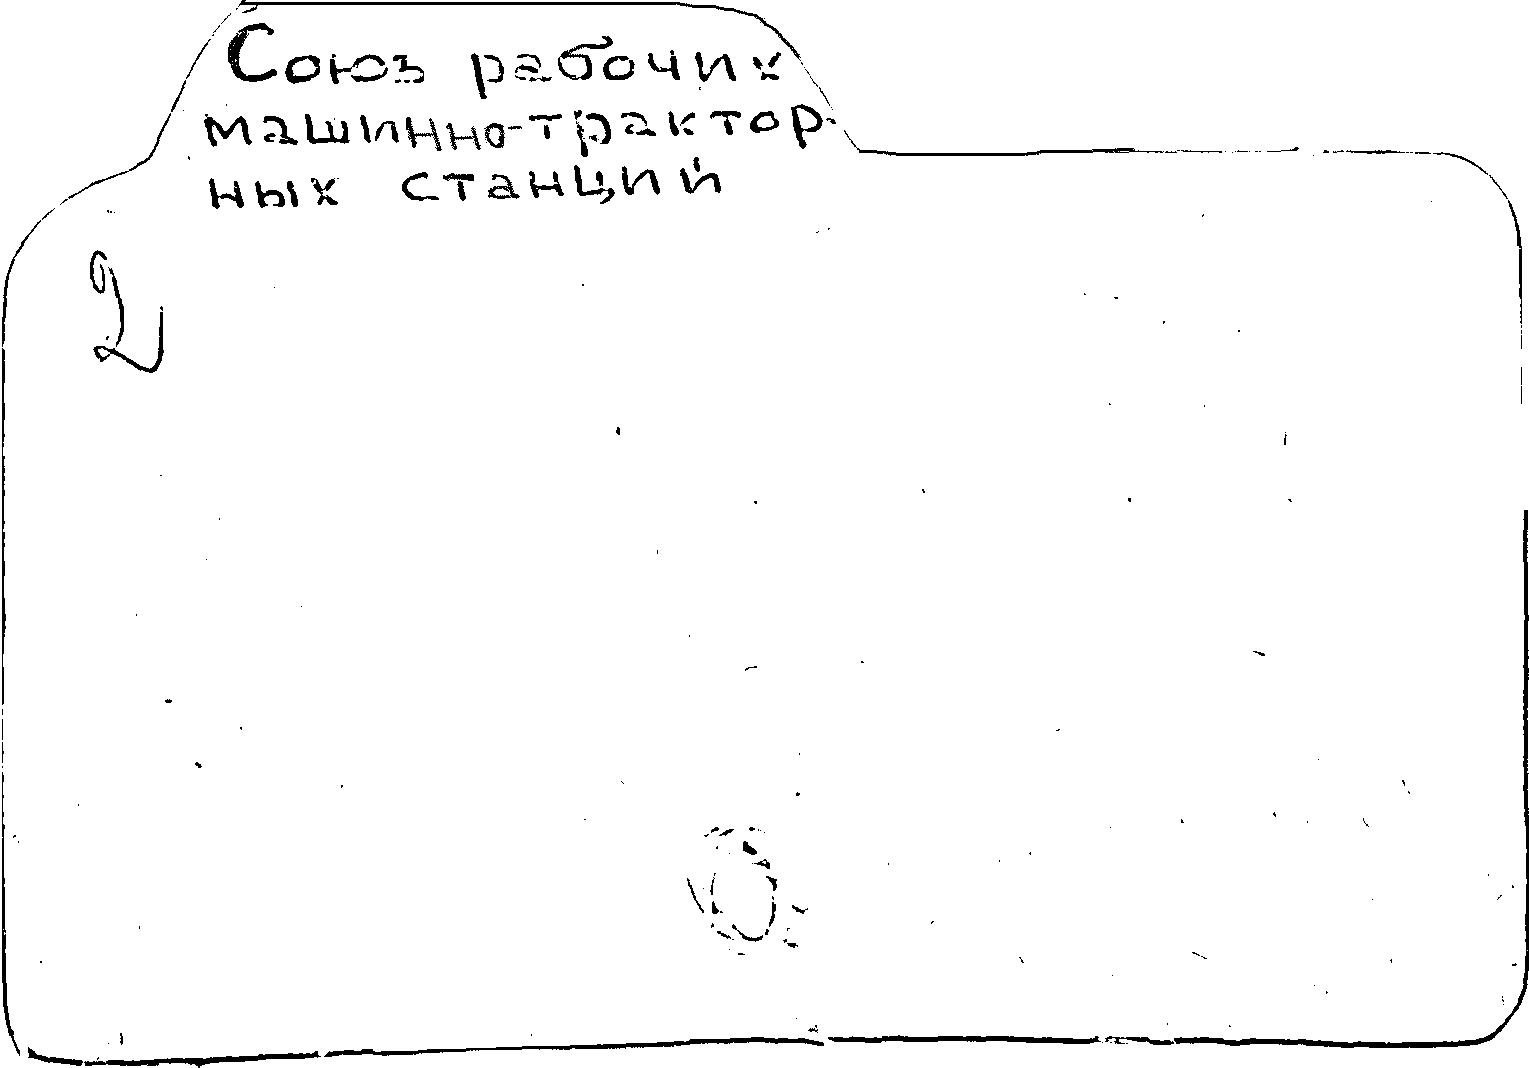 Союз рабочих
машинно-трактор-
ных станций
2